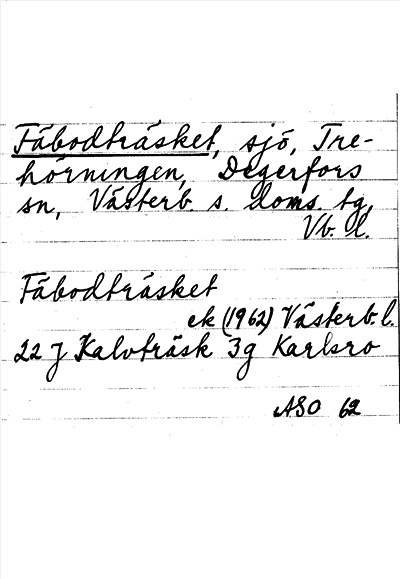 Fäbodträsket, sjö, Tre-
hörningen, Degerfors
sn, Västerb. s. doms. tg,
Vb. l.
Fäbodträsket
ek (1962) Västerb. l.
22 J Kalvträsk 3g Karlsro
ASO 62